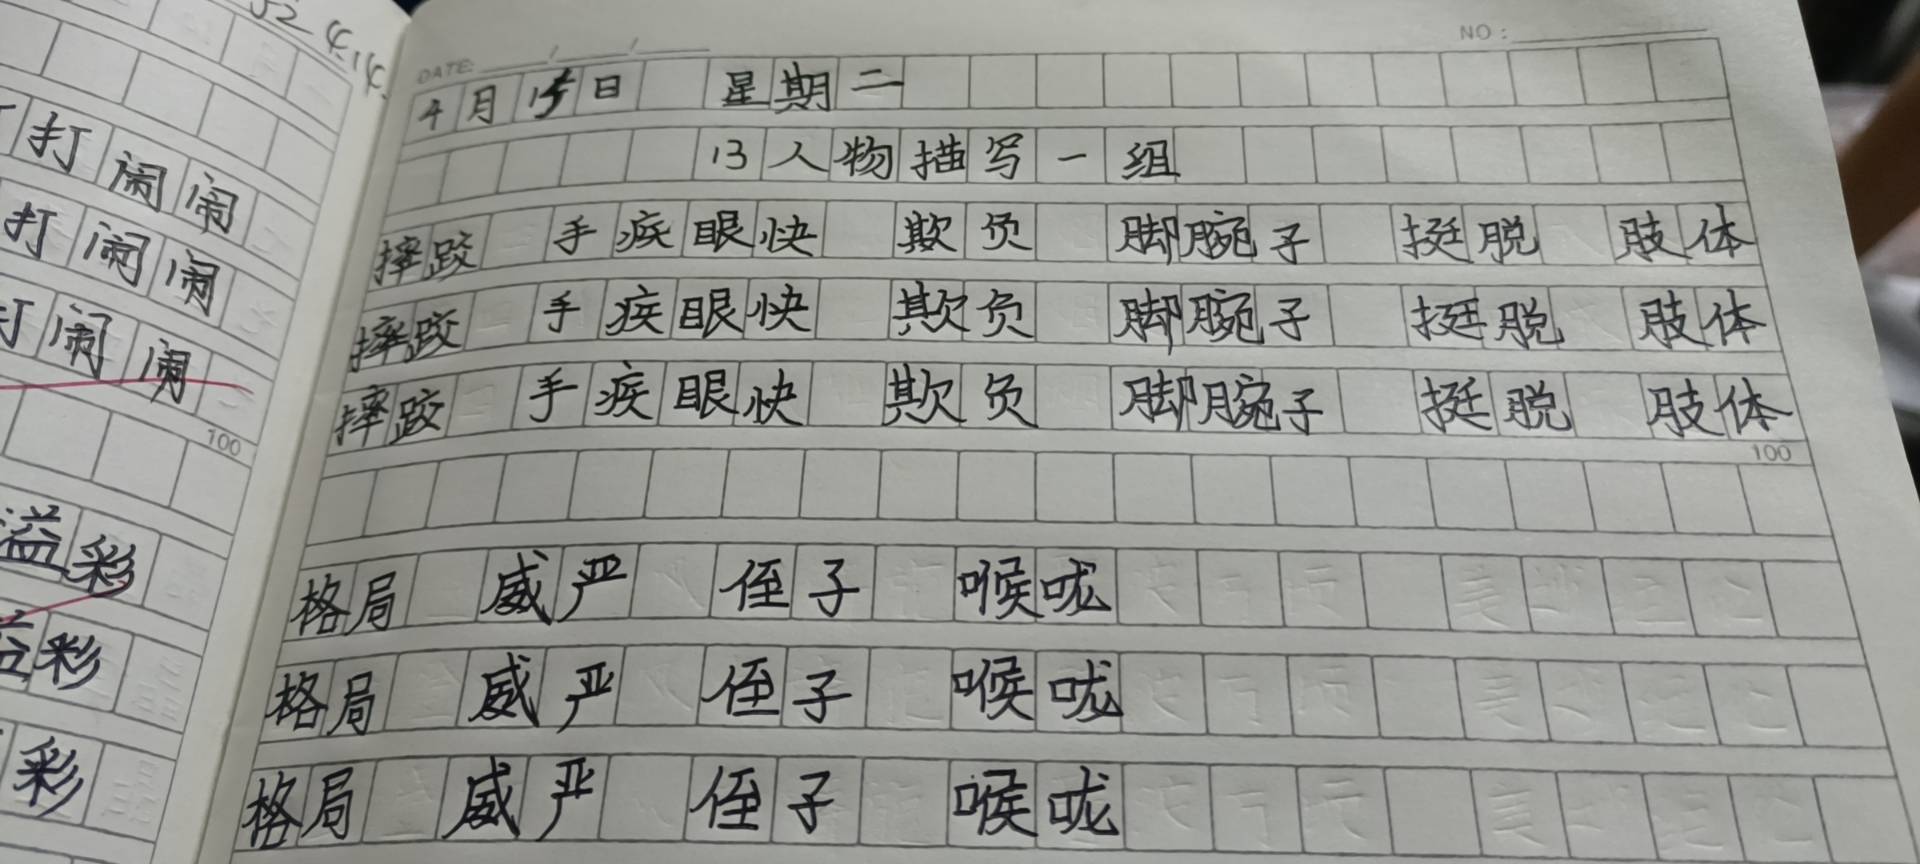 52 4.14.
打闹闹
打闹闹
打闹闹
100
溢彩
益彩
彩
DATE: / / NO:
4月15日 星期二
13人物描写一组
摔跤 手疾眼快 欺负 脚腕子 挺脱 肢体
摔跤 手疾眼快 欺负 脚腕子 挺脱 肢体
摔跤 手疾眼快 欺负 脚腕子 挺脱 肢体
100
格局 威严 侄子 喉咙
格局 威严 侄子 喉咙
格局 威严 侄子 喉咙